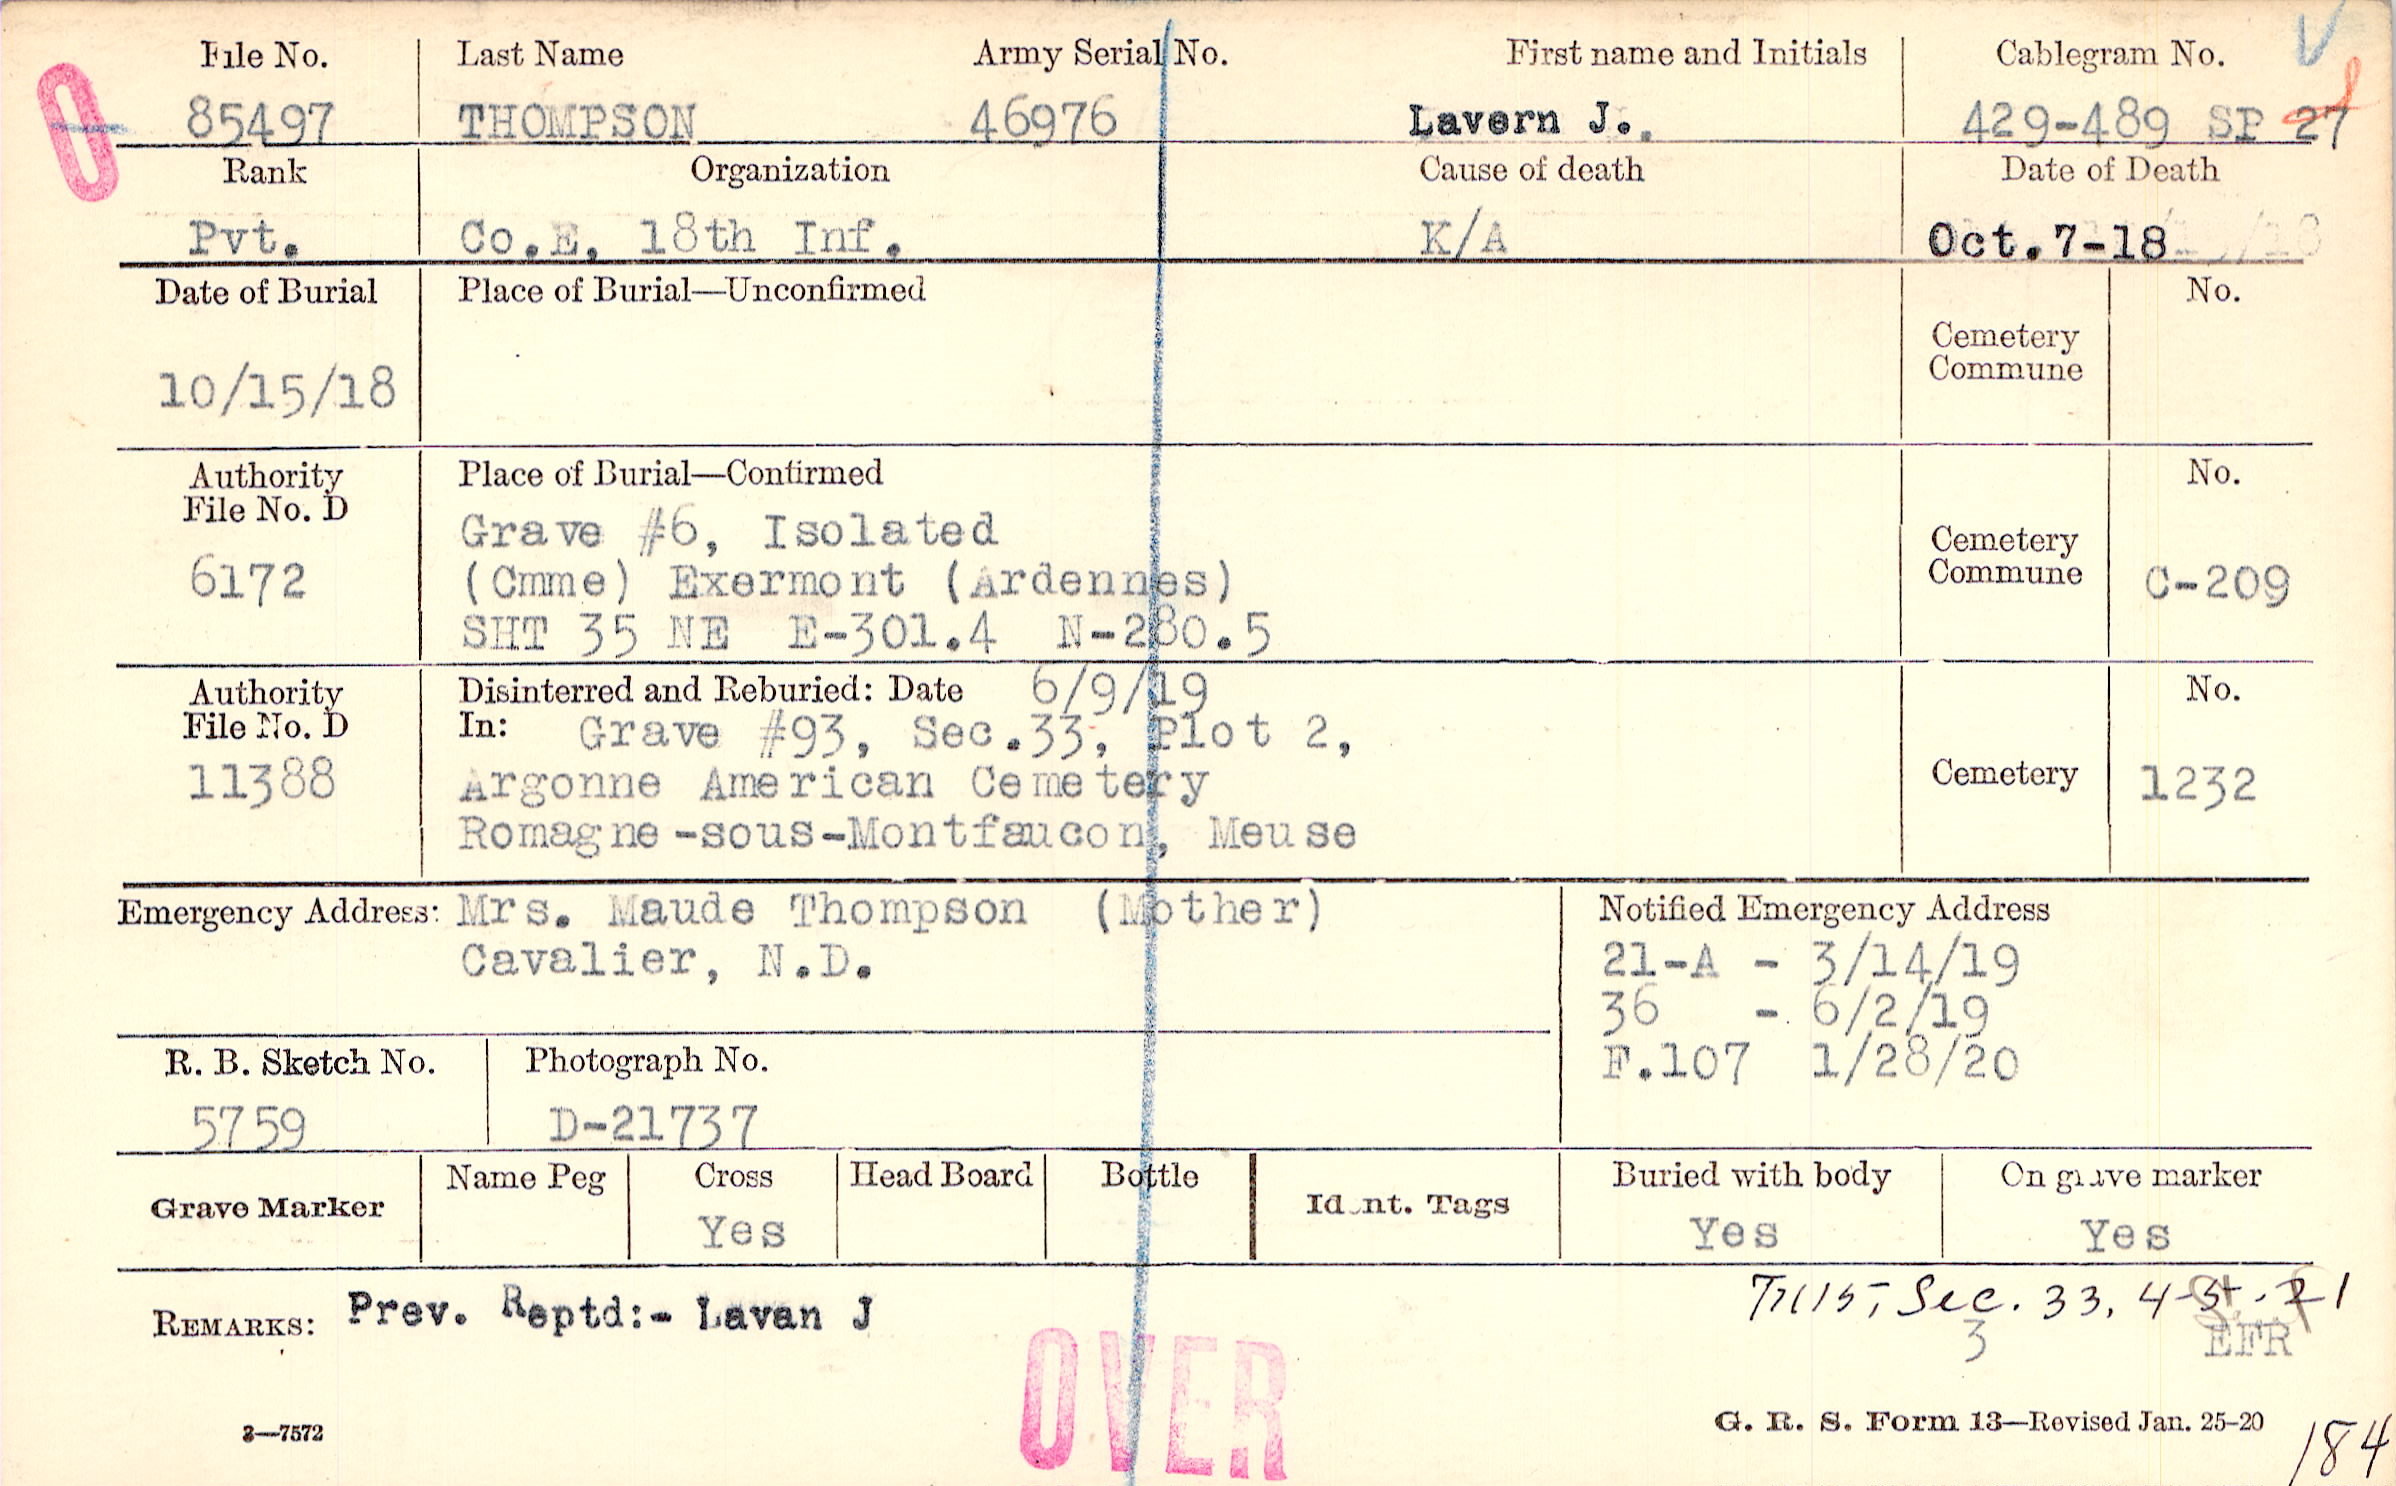 File No. Last Name Army Serial No. First name and Initials Cablegram No.
85497 THOMPSON 46976 Lavern J. 429-489 SP 27
Rank Organization Cause of death Date of Death
Pvt. Co.E, 18th Inf. K/A Oct.7-18
Date of Burial Place of Burial—Unconfirmed No.
Cemetery
Commune
10/15/18
Authority Place of Burial—Confirmed No.
File No. D
Grave #6, Isolated
Cemetery
6172 (Cmme) Exermont (Ardennes) Commune C-209
SHT 35 NE E-301.4 N-280.5
Authority Disinterred and Reburied: Date 6/9/19 No.
File No. D In: Grave #93, Sec.33, Plot 2,
11388 Argonne American Cemetery Cemetery 1232
Romagne-sous-Montfaucon, Meuse
Emergency Address: Mrs. Maude Thompson (Mother) Notified Emergency Address
Cavalier, N.D. 21-A - 3/14/19
36 - 6/2/19
R. B. Sketch No. Photograph No. F.107 1/28/20
5759 D-21737
Grave Marker Name Peg Cross Head Board Bottle Ident. Tags Buried with body On grave marker
Yes Yes Yes
REMARKS: Prev. Reptd:- Lavan J Sec. 33,
3 EFR
OVER
3—7572 G. R. S. Form 13—Revised Jan. 25-20 184